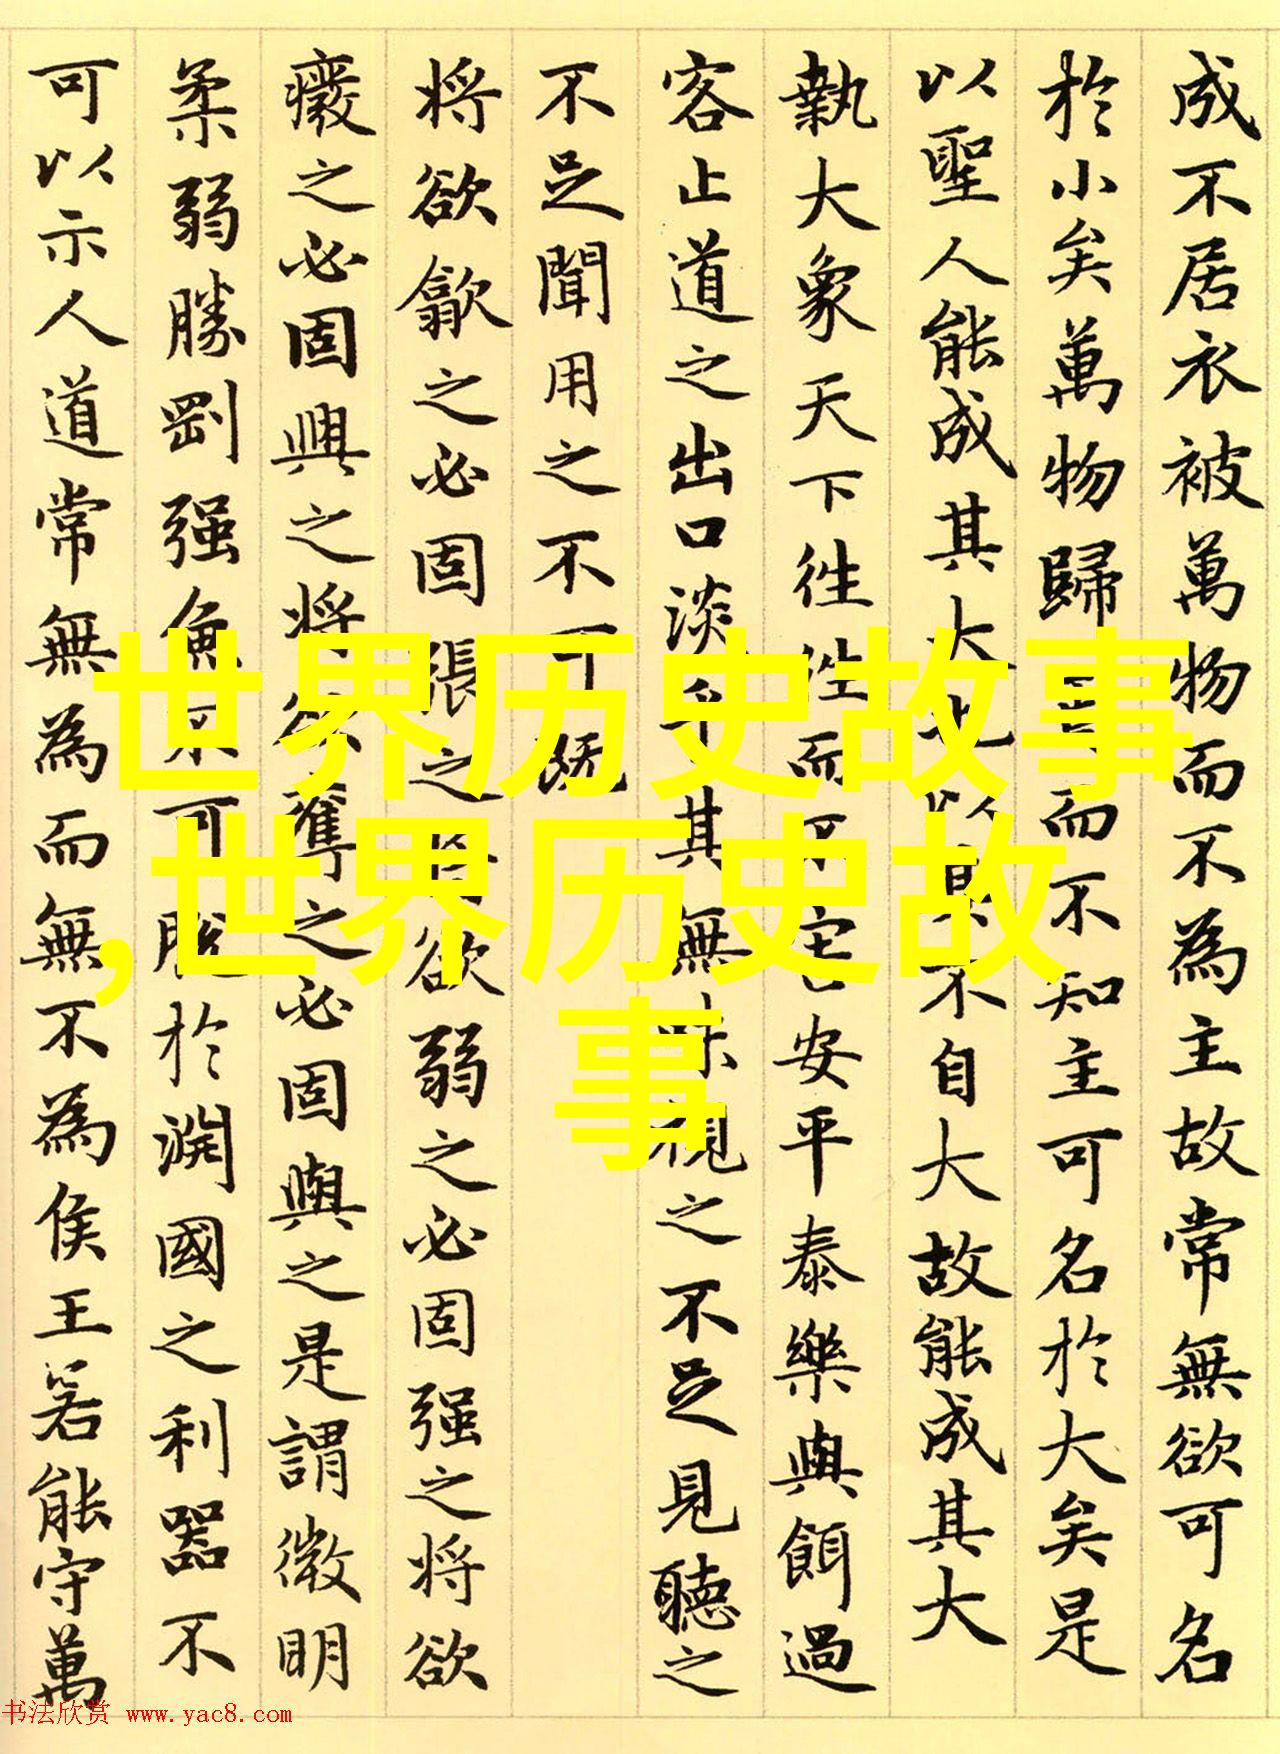 成不居衣被萬物而不為主故常無欲可名
於小矣萬物歸而不知主可名於大矣是
以聖人能成其大也以其不自大故能成其大
執大象天下往往而不害安平泰樂與餌過
客止道之出口淡乎其無味視之不足見聽之
不足聞用之不可既
將欲歙之必固張之將欲弱之必固强之將欲
癈之必固興之將欲奪之必固與之是謂微明
柔弱勝剛强魚不可脫於淵國之利器不
可以示人道常無為而無不為侯王若能守萬
世界历史故事
,世界历史故
事
书法欣赏 www.yac8.com